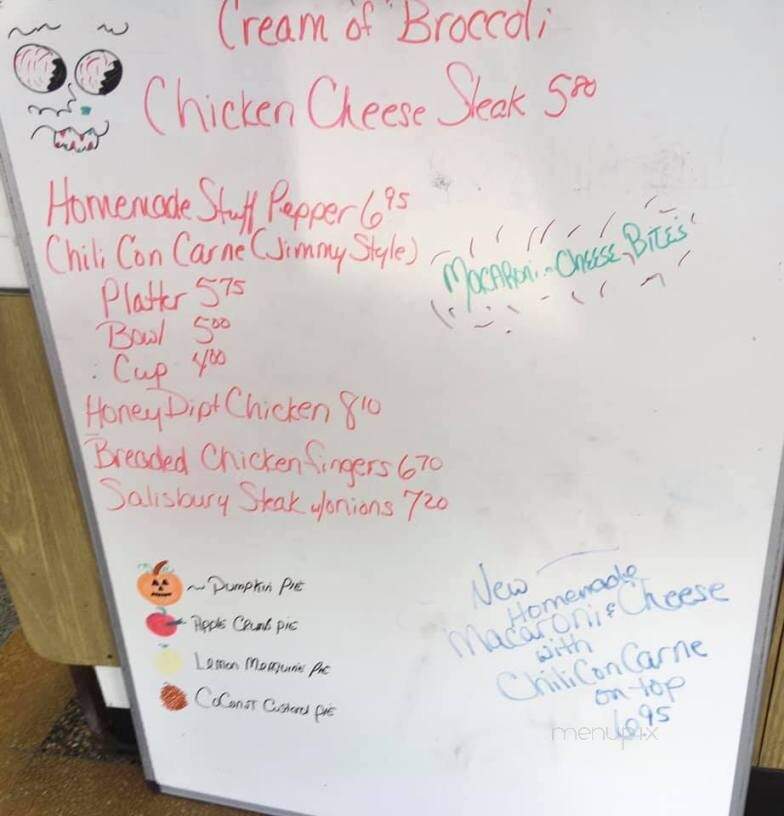 Cream of Broccoli
Chicken Cheese Steak 5 80
Homemade Stuff Pepper 6 95
Chili Con Carne (Jimmy Style)
Macaroni - Cheese Bites
Platter 5 75
Bowl 5 00
Cup 4 00
Honey Dipt Chicken 8 10
Breaded Chicken fingers 6 70
Salisbury Steak w/onions 7 20
Pumpkin Pie
Apple Crumb pie
Lemon Merguine Pie
CoConut Custard pie
New
Homemade
Macaroni & Cheese
with
Chili Con Carne
on top
6 95
menupix